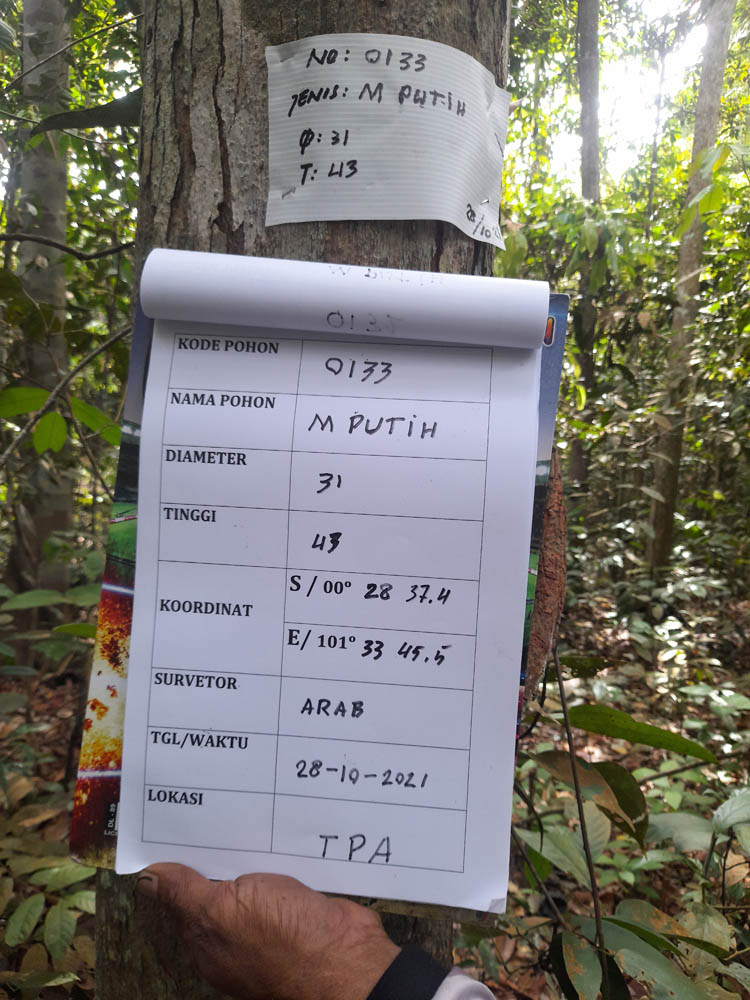 NO: 0133
JENIS: M PUTIH
Φ: 31
T: 43
28/10
KODE POHON 0133
NAMA POHON M PUTIH
DIAMETER 31
TINGGI 43
KOORDINAT S / 00° 28 37.4
E/ 101° 33 45.5
SURVETOR ARAB
TGL/WAKTU 28-10-2021
LOKASI TPA
DL - 89